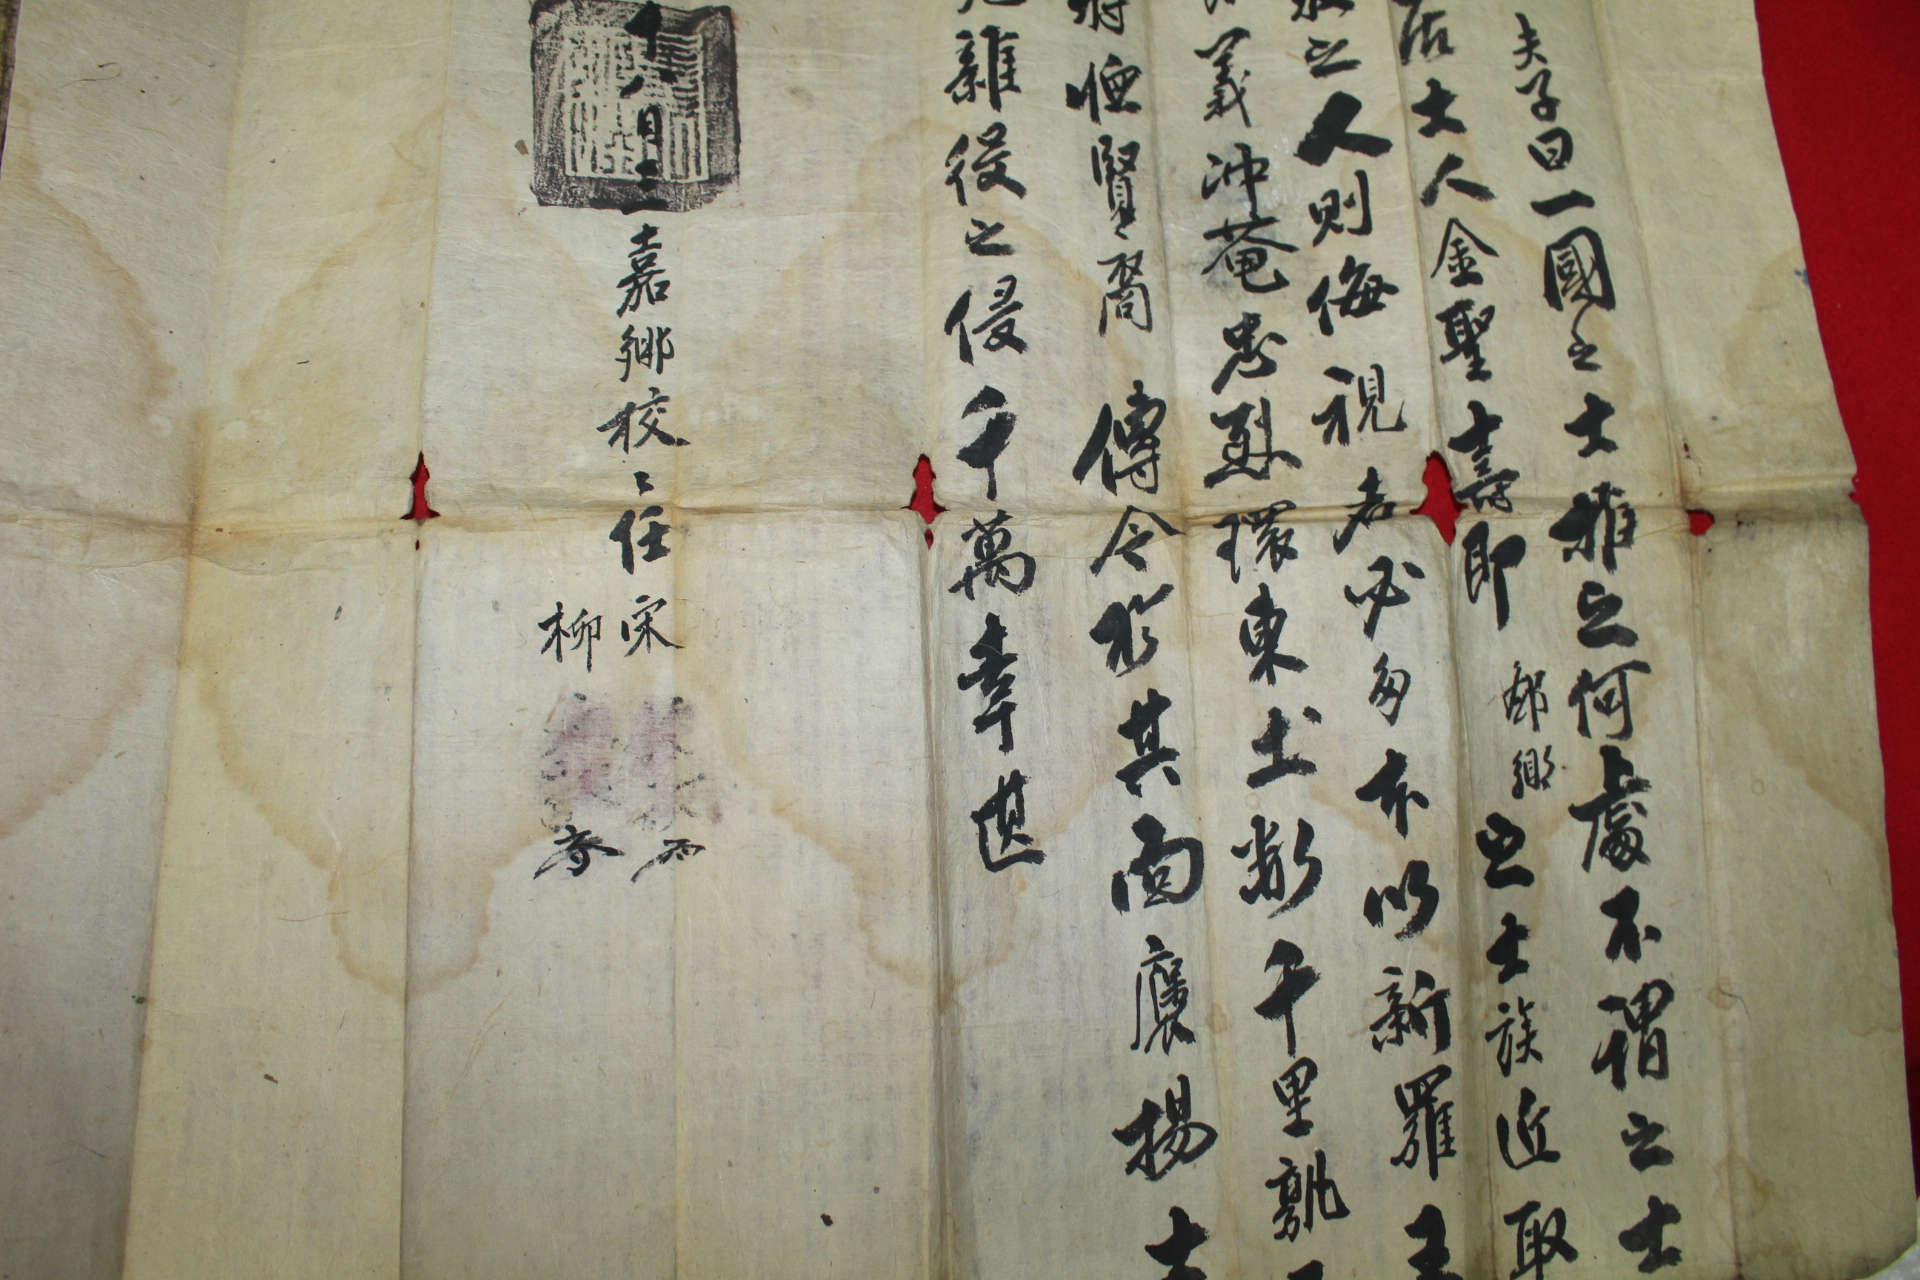 夫子曰一國之士推之何處不謂之士
居士人金聖壽即鄒鄉之士族近取
之人則侮視者必多而以新羅王
義沖菴忠烈環東土數千里孰
恤賢裔 傳令於其面褒揚士
雜役之侵千萬幸甚
十八月二 嘉鄉校〻任 宋
柳